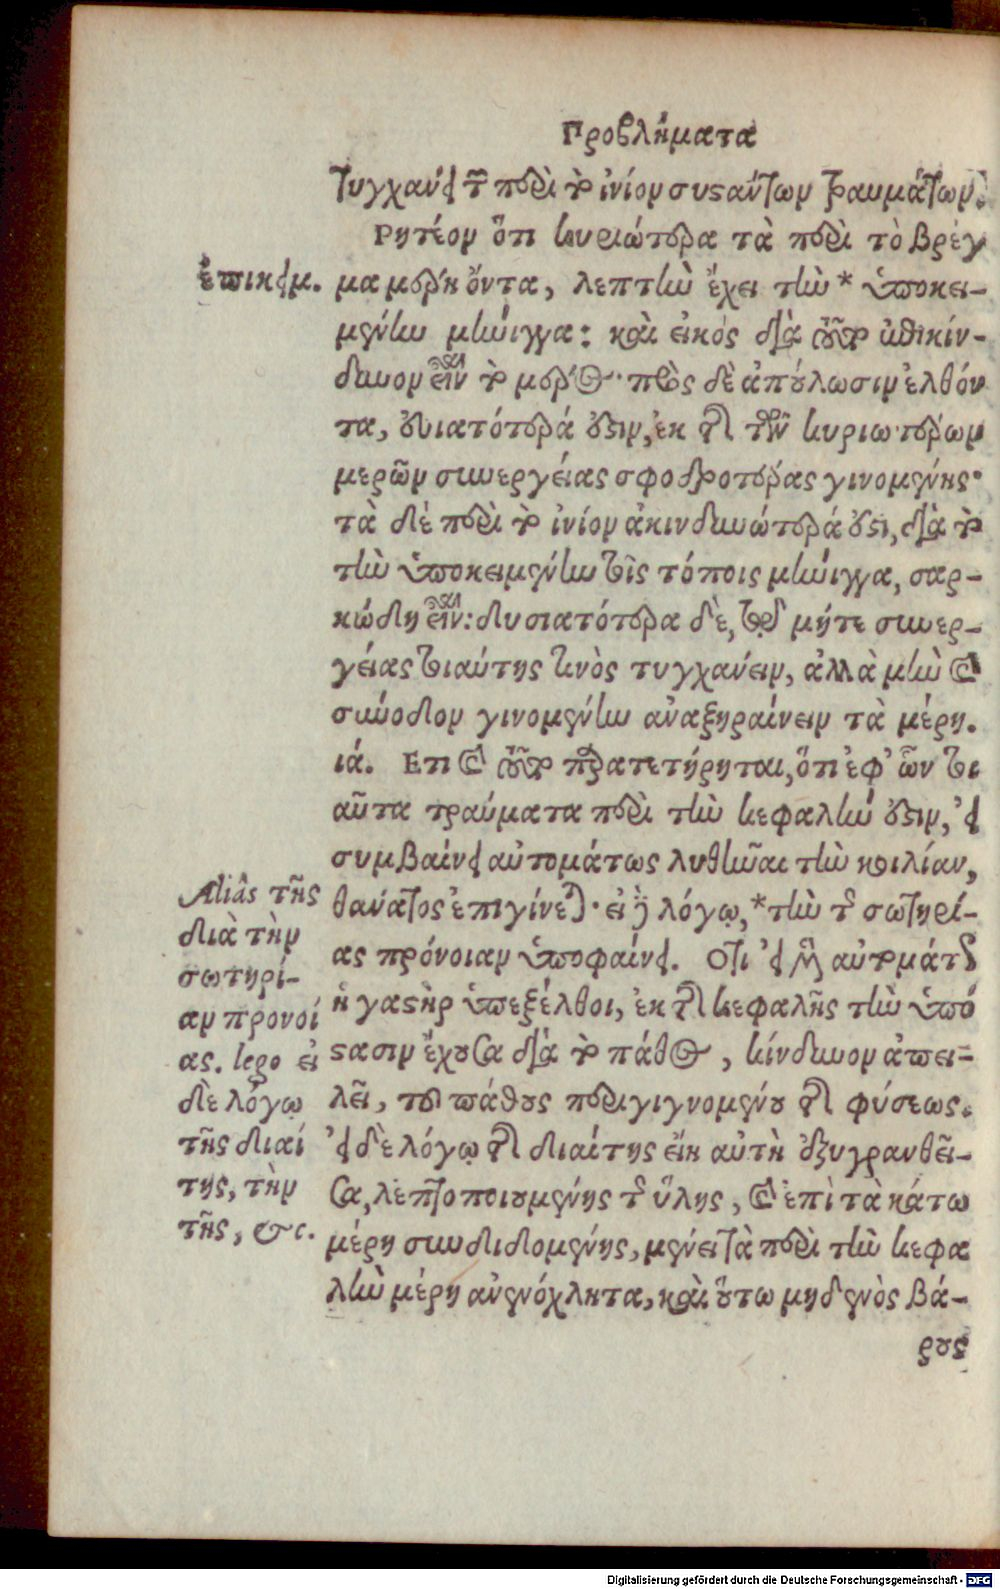 Προβλήματα
τυγχάνει τῶν περὶ τὸ ἰνίον συστάντων τραυμάτων.
Ρητέον ὅτι κυριώτερα τὰ περὶ τὸ βρέγ
μα μέρη ὄντα, λεπτὴν ἔχει τὴν * ὑποκει-
ἐπικειμ.
μένην μήνιγγα: καὶ εἰκὸς διὰ τοῦτο ἐπικίν-
δυνον εἶναι τὸ μέρος· πρὸς δὲ ἀπούλωσιν ἐλθόν
τα, εὐιατότερά ἐστιν, ἐκ τῆς τῶν κυριωτέρων
μερῶν συνεργείας σφοδροτέρας γινομένης·
τὰ δὲ περὶ τὸ ἰνίον ἀκινδυνώτερά ἐστι, διὰ τὸ
τὴν ὑποκειμένην τοῖς τόποις μήνιγγα, σαρ-
κώδη εἶναι: δυσιατότερα δὲ, τῷ μήτε συνερ-
γείας τοιαύτης τινὸς τυγχάνειν, ἀλλὰ μὴν καὶ
σύνοδον γινομένην ἀναξηραίνειν τὰ μέρη.
ιά. Ετι καὶ τοῦτο παρατετήρηται, ὅτι ἐφ’ ὧν τοι
αῦτα τραύματα περὶ τὴν κεφαλήν ἐστιν, εἰ
συμβαίνει αὐτομάτως λυθῆναι τὴν κοιλίαν,
θάνατος ἐπιγίνεται· εἰ δὲ λόγῳ, * τὴν τῆς σωτηρί-
ας πρόνοιαν ὑποφαίνει. Οτι εἰ μὲν αὐτομάτως
ἡ γαστὴρ ὑπεξέλθοι, ἐκ τῆς κεφαλῆς τὴν ὑπό
στασιν ἔχουσα διὰ τὸ πάθος, κίνδυνον ἀπει-
λεῖ, τοῦ πάθους περιγιγνομένου τῆς φύσεως.
εἰ δὲ λόγῳ τῆς διαίτης εἴη αὐτὴ ἐξυγρανθεῖ-
σα, λεπτοποιουμένης τῆς ὕλης, καὶ ἐπὶ τὰ κάτω
μέρη συνδιδομένης, μένει τὰ περὶ τὴν κεφα
λὴν μέρη ἀνενόχλητα, καὶ οὕτω μηδενὸς βά-
ρους
Aliâs τῆς
διὰ τὴν
σωτηρί-
αν προνοί
ας. lego εἰ
δὲ λόγῳ
τῆς διαί
της, τὴν
τῆς, &c.
Digitalisierung gefördert durch die Deutsche Forschungsgemeinschaft - DFG